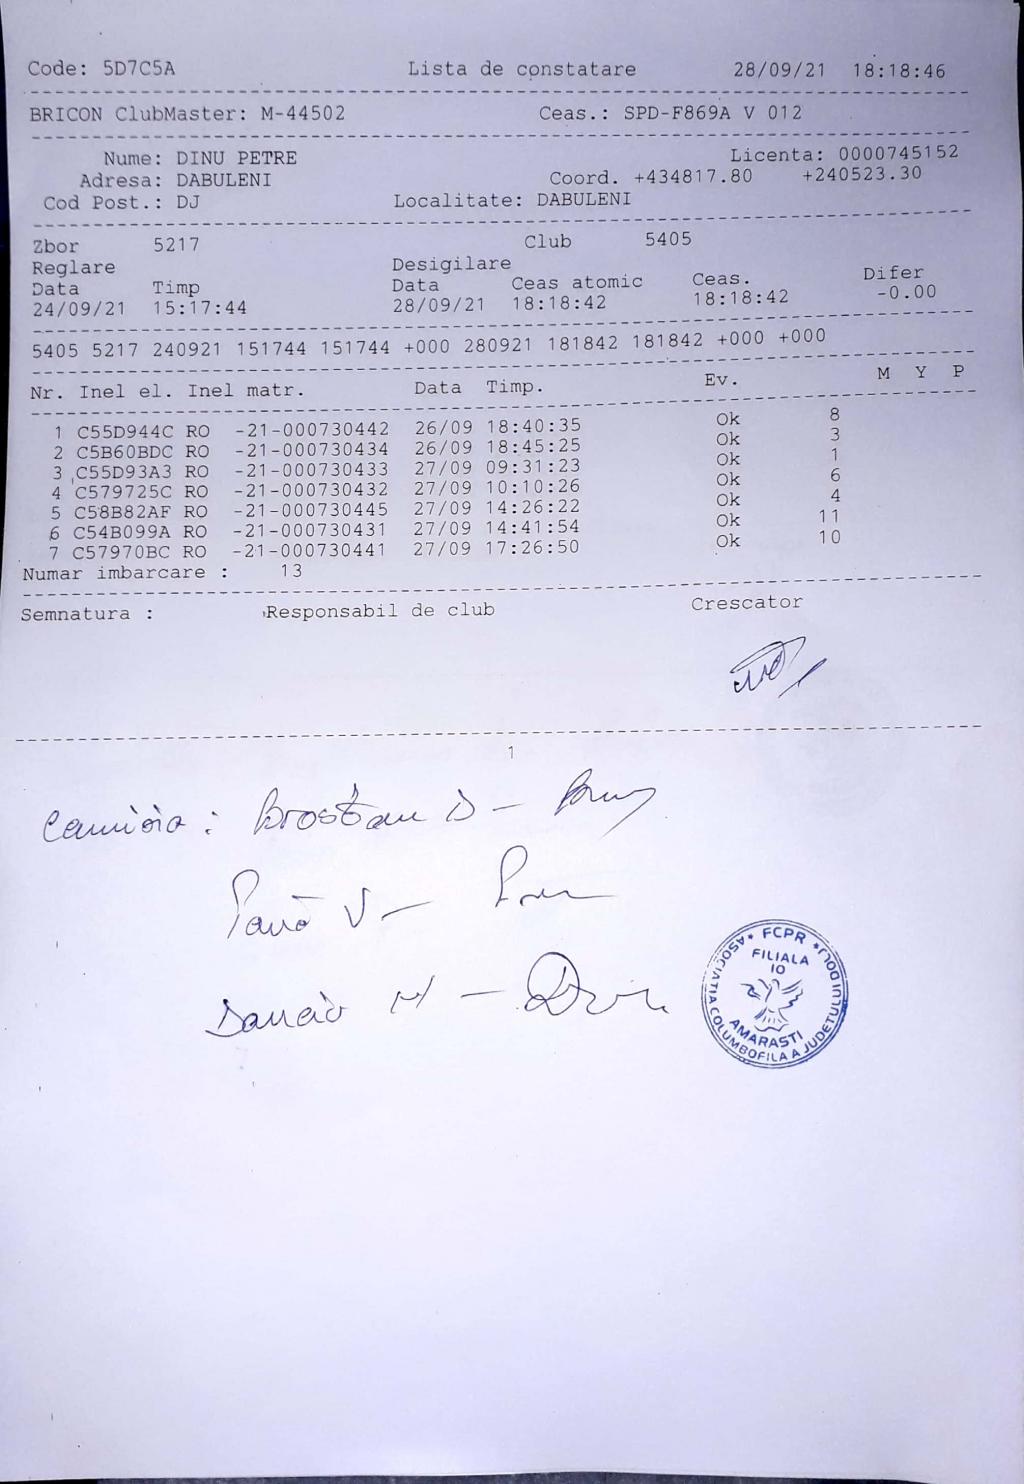 Code: 5D7C5A Lista de constatare 28/09/21 18:18:46
BRICON ClubMaster: M-44502 Ceas.: SPD-F869A V 012
Nume: DINU PETRE Licenta: 0000745152
Adresa: DABULENI Coord. +434817.80 +240523.30
Cod Post.: DJ Localitate: DABULENI
Zbor 5217 Club 5405
Reglare Desigilare
Data Timp Data Ceas atomic Ceas. Difer
24/09/21 15:17:44 28/09/21 18:18:42 18:18:42 -0.00
5405 5217 240921 151744 151744 +000 280921 181842 181842 +000 +000
Nr. Inel el. Inel matr. Data Timp. Ev. M Y P
1 C55D944C RO -21-000730442 26/09 18:40:35 Ok 8
2 C5B60BDC RO -21-000730434 26/09 18:45:25 Ok 3
3 C55D93A3 RO -21-000730433 27/09 09:31:23 Ok 1
4 C579725C RO -21-000730432 27/09 10:10:26 Ok 6
5 C58B82AF RO -21-000730445 27/09 14:26:22 Ok 4
6 C54B099A RO -21-000730431 27/09 14:41:54 Ok 11
7 C57970BC RO -21-000730441 27/09 17:26:50 Ok 10
Numar imbarcare : 13
Semnatura : Responsabil de club Crescator
1
Brostan D -
Pană V -
M -
FCPR
FILIALA
10
AMARASTI
ASOCIATIA COLUMBOFILA A JUDETULUI DOLJ